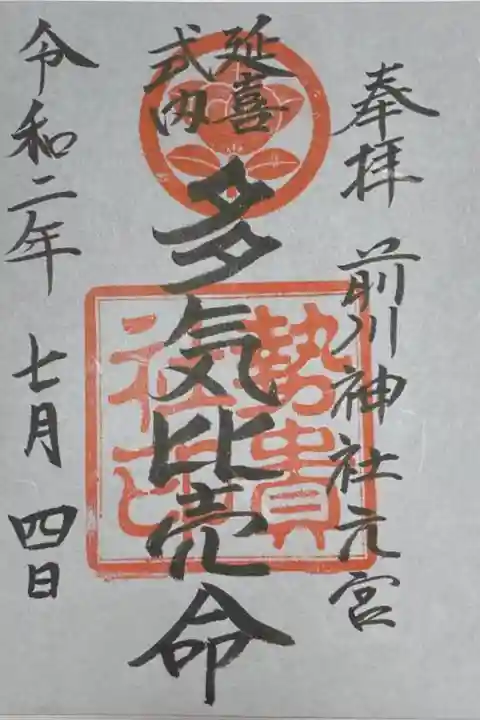 奉拝 前川神社元宮
延喜
式内
多気比売命
令和二年 七月 四日
勢貴
社印